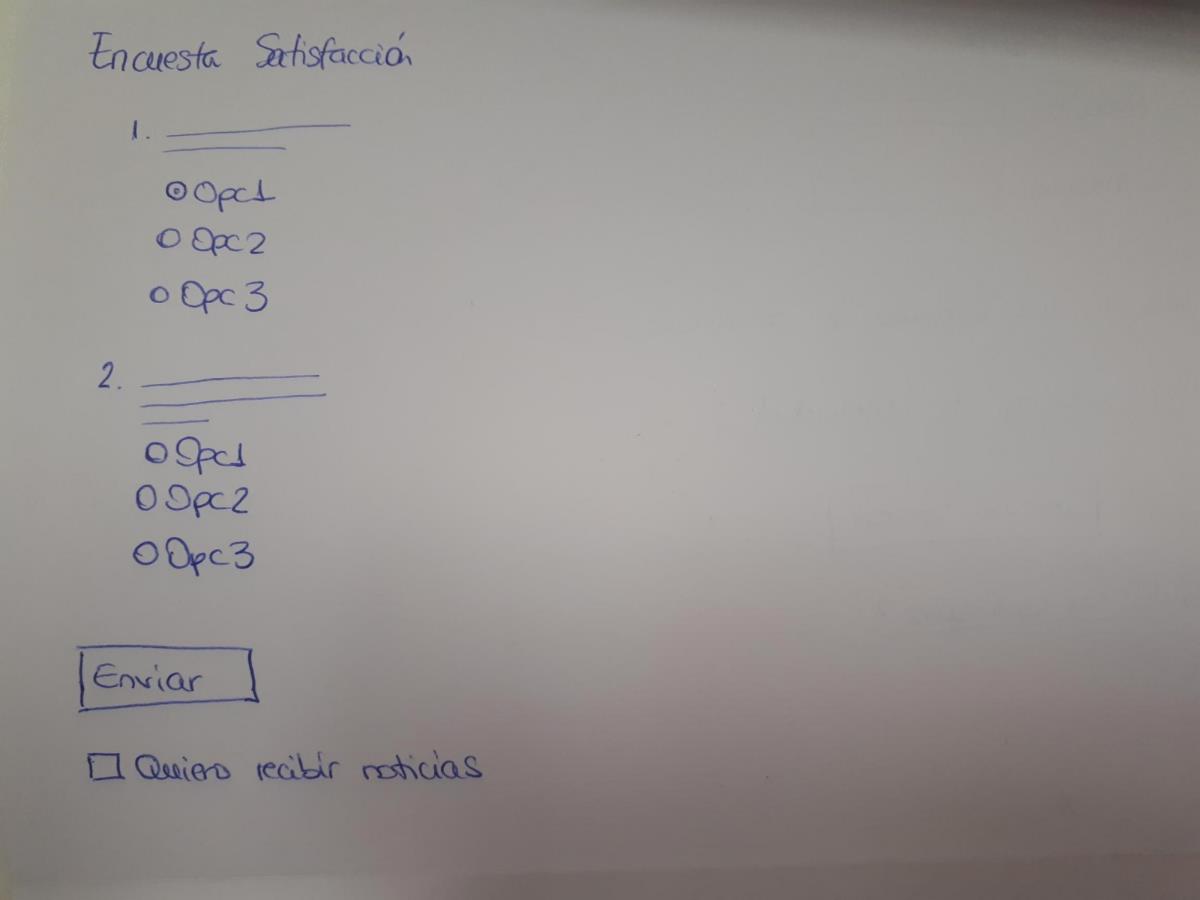 Encuesta Satisfacción
1.
Opc1
Opc2
Opc3
2.
Opc1
Opc2
Opc3
Enviar
Quiero recibir noticias